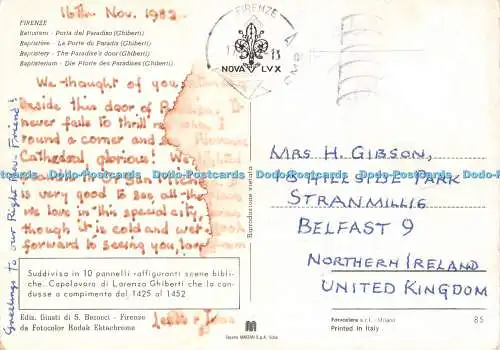 16th Nov. 1982
FIRENZE
Battistero - Porta del Paradiso (Ghiberti)
Baptistère - La Porte du Paradis (Ghiberti)
Baptistery - The Paradise's door (Ghiberti)
Baptisterium - Die Pforte des Paradises (Ghiberti)
We thought of you
Beside this door of
never fails to thrill me when I
round a corner and see
Cathedral glorious! We
is very good to see all the
we love in this special city,
though it is cold and wet
forward to seeing you, love
Greetings to our Right Rev. Friend!
Suddivisa in 10 pannelli raffiguranti scene bibli-
che. Capolavoro di Lorenzo Ghiberti che la con-
dusse a compimento dal 1425 al 1452
Ediz. Giusti di S. Becocci - Firenze
da Fotocolor Kodak Ektachrome
FIRENZE
NOVA LUX
Riproduzione vietata
MRS H. GIBSON,
HILLSIDE PARK
STRANMILLIS
BELFAST 9
NORTHERN IRELAND
UNITED KINGDOM
Fotocelere s.r.l. - Milano
Printed in Italy
85
Dodo-Postcards Dodo-Postcards Dodo-Postcards